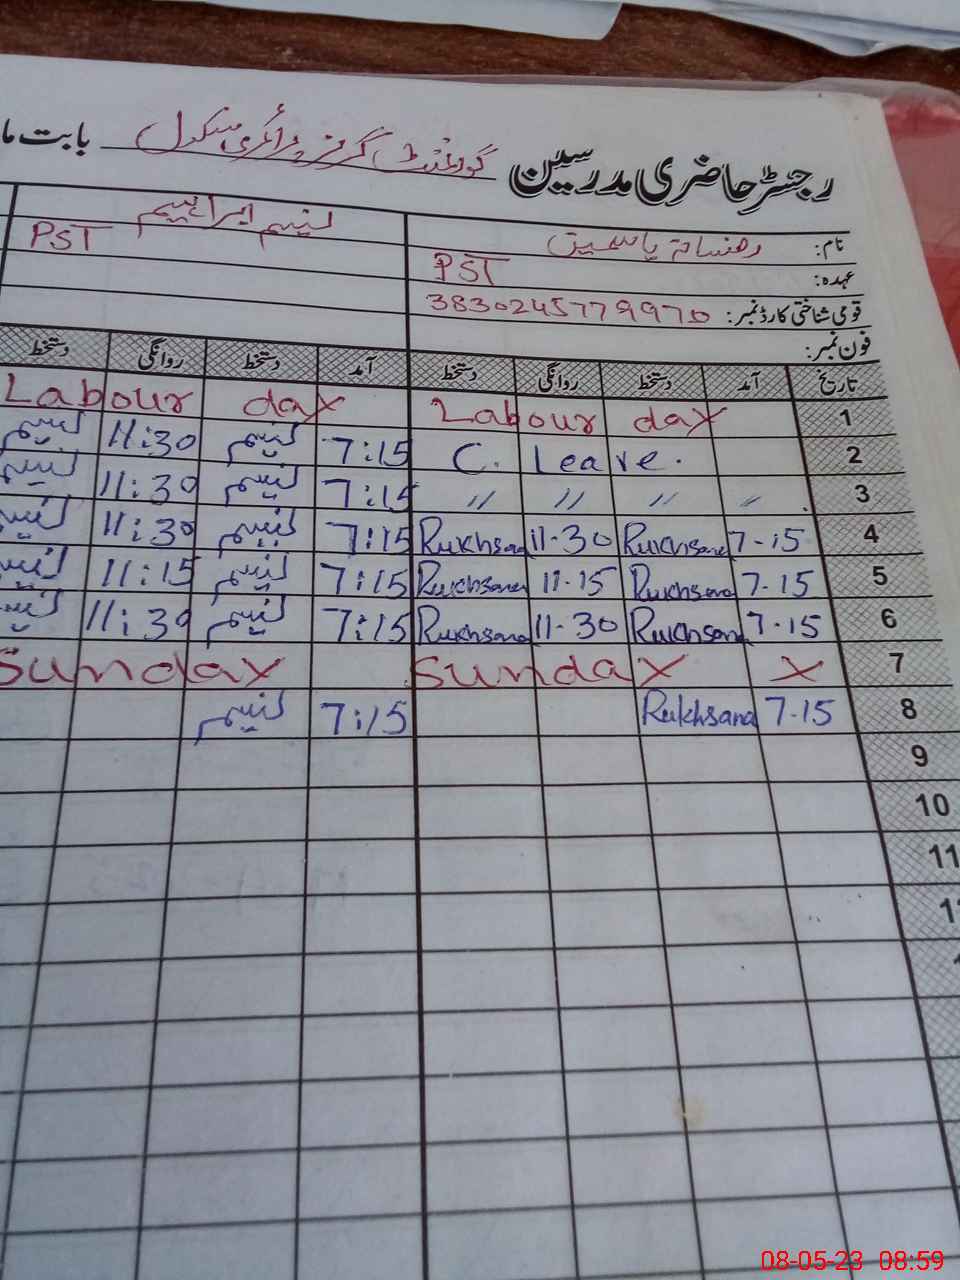 رجسٹر حاضری مدرسین گورنمنٹ گرلز پرائمری سکول بابت
نام: رخسانہ یاسمین نسیم ابراہیم
عہدہ: PST PST
قومی شناختی کارڈ نمبر: 3830245779970
فون نمبر:
تاریخ آمد دستخط روانگی دستخط آمد دستخط روانگی دستخط
1 Labour day Labour day
2 C. Leave. 7:15 نسیم 11:30 نسیم
3 〃 〃 〃 〃 7:15 نسیم 11:30 نسیم
4 7-15 Rukhsana 11-30 Rukhsana 7:15 نسیم 11:30 نسیم
5 7-15 Rukhsana 11-15 Rukhsana 7:15 نسیم 11:15 نسیم
6 7-15 Rukhsana 11-30 Rukhsana 7:15 نسیم 11:30 نسیم
7 x Sunday Sunday
8 7-15 Rukhsana 7:15 نسیم
9
10
11
08-05-23 08:59